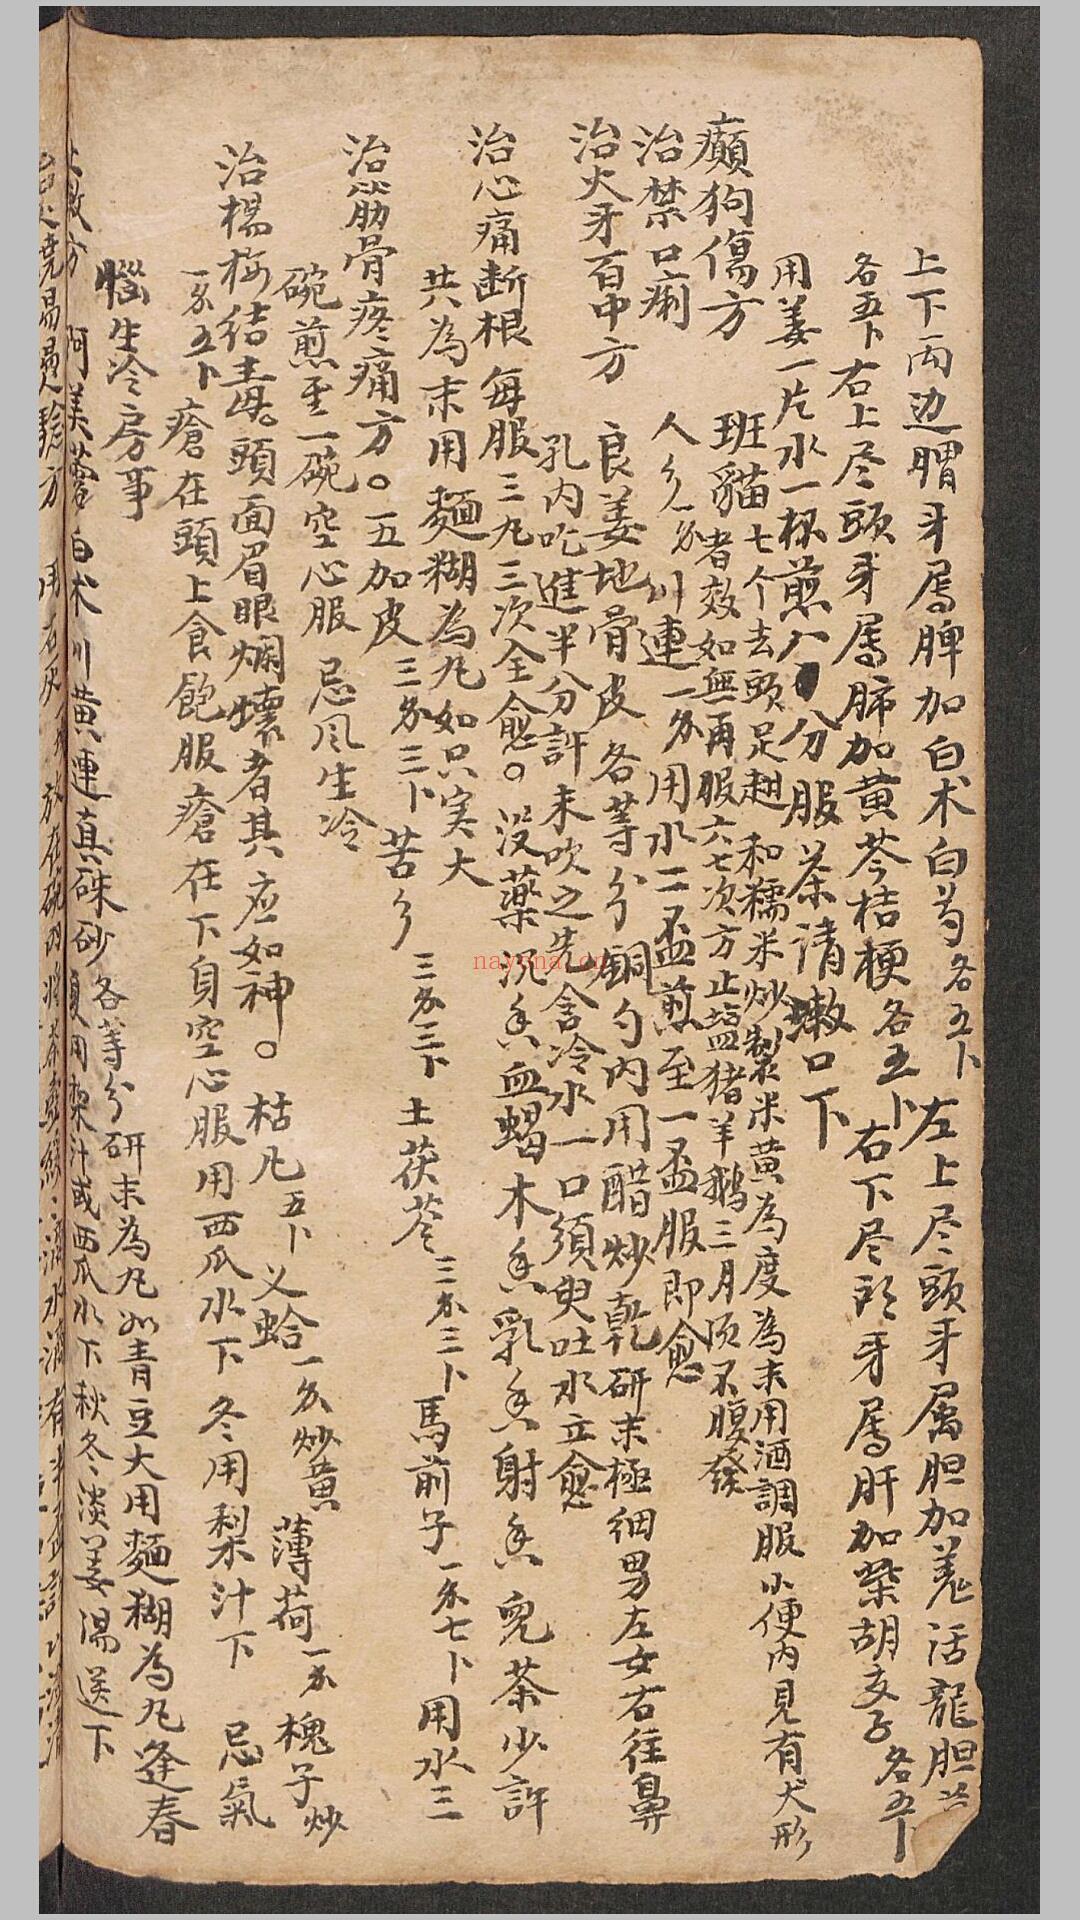 上下両边胃牙属脾加白术白芍各五卜左上尽頭牙属胆加羗活龍胆
各五卜右上尽頭牙属肺加黄芩桔梗各五卜右下尽牙属肝加柴胡各五卜
用姜一片水一杯煎八分服茶清嗽口下
癲狗傷方 班貓七个去頭足翅和糯米炒製米黄為度為末用酒調服小便内見有犬形
者效如無再服六七次方止塩猪羊鵝三月
治禁口痢 人一川連一用水二盃煎至一盃服即愈
治火牙百中方 良姜地骨皮各等分銅勺内用醋炒乾研末極细男左女右往鼻
孔内吃進半分許末吹之先含冷水一口須臾吐水立愈
治心痛断根每服三丸三次全愈。没藥沉香血蝎木香乳香射香兒茶少許
共為末用麵糊為丸如大
治筋骨疼痛方。五加皮三卜苦三卜土茯苓三卜馬前子一七卜用水三
碗煎至一碗空心服 忌风生冷
治楊梅结毒。頭面眉眼爛壞者其应如神。枯凡五卜蛤一炒黄薄荷一槐子炒
一五卜瘡在頭上食飽服瘡在下身空心服用西瓜水下冬用梨汁下 忌氣
惱生冷房事
方 白术川黄連真硃砂各等分研末為丸如青豆大用麵糊為丸逢春
夏用梨汁或西瓜水下秋冬淡姜湯送下
nayona.cn